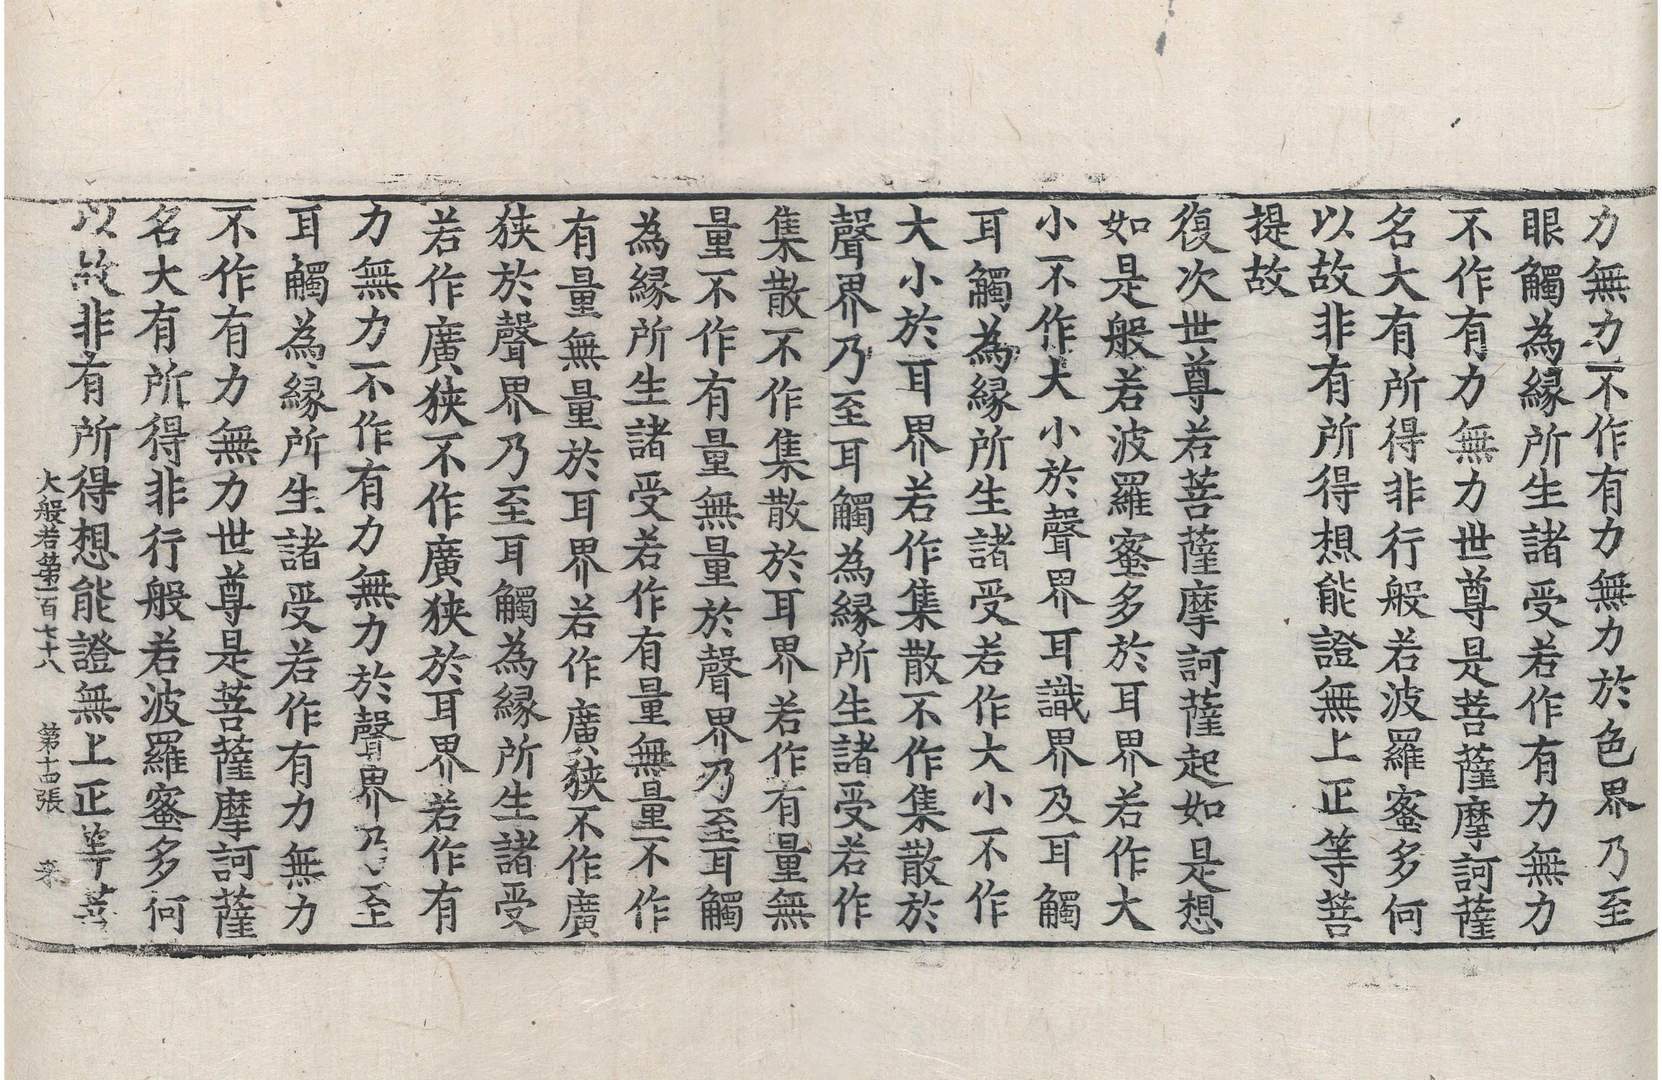 力無力不作有力無力於色界乃至
眼觸為縁所生諸受若作有力無力
不作有力無力世尊是菩薩摩訶薩
名大有所得非行般若波羅蜜多何
以故非有所得想能證無上正等菩
提故
復次世尊若菩薩摩訶薩起如是想
如是般若波羅蜜多於耳界若作大
小不作大小於聲界耳識界及耳觸
耳觸為縁所生諸受若作大小不作
大小於耳界若作集散不作集散於
聲界乃至耳觸為縁所生諸受若作
集散不作集散於耳界若作有量無
量不作有量無量於聲界乃至耳觸
為縁所生諸受若作有量無量不作
有量無量於耳界若作廣狹不作廣
狹於聲界乃至耳觸為縁所生諸受
若作廣狹不作廣狹於耳界若作有
力無力不作有力無力於聲界乃至
耳觸為縁所生諸受若作有力無力
不作有力無力世尊是菩薩摩訶薩
名大有所得非行般若波羅蜜多何
以故非有所得想能證無上正等菩
大般若第一百七十八 第十四張 菜